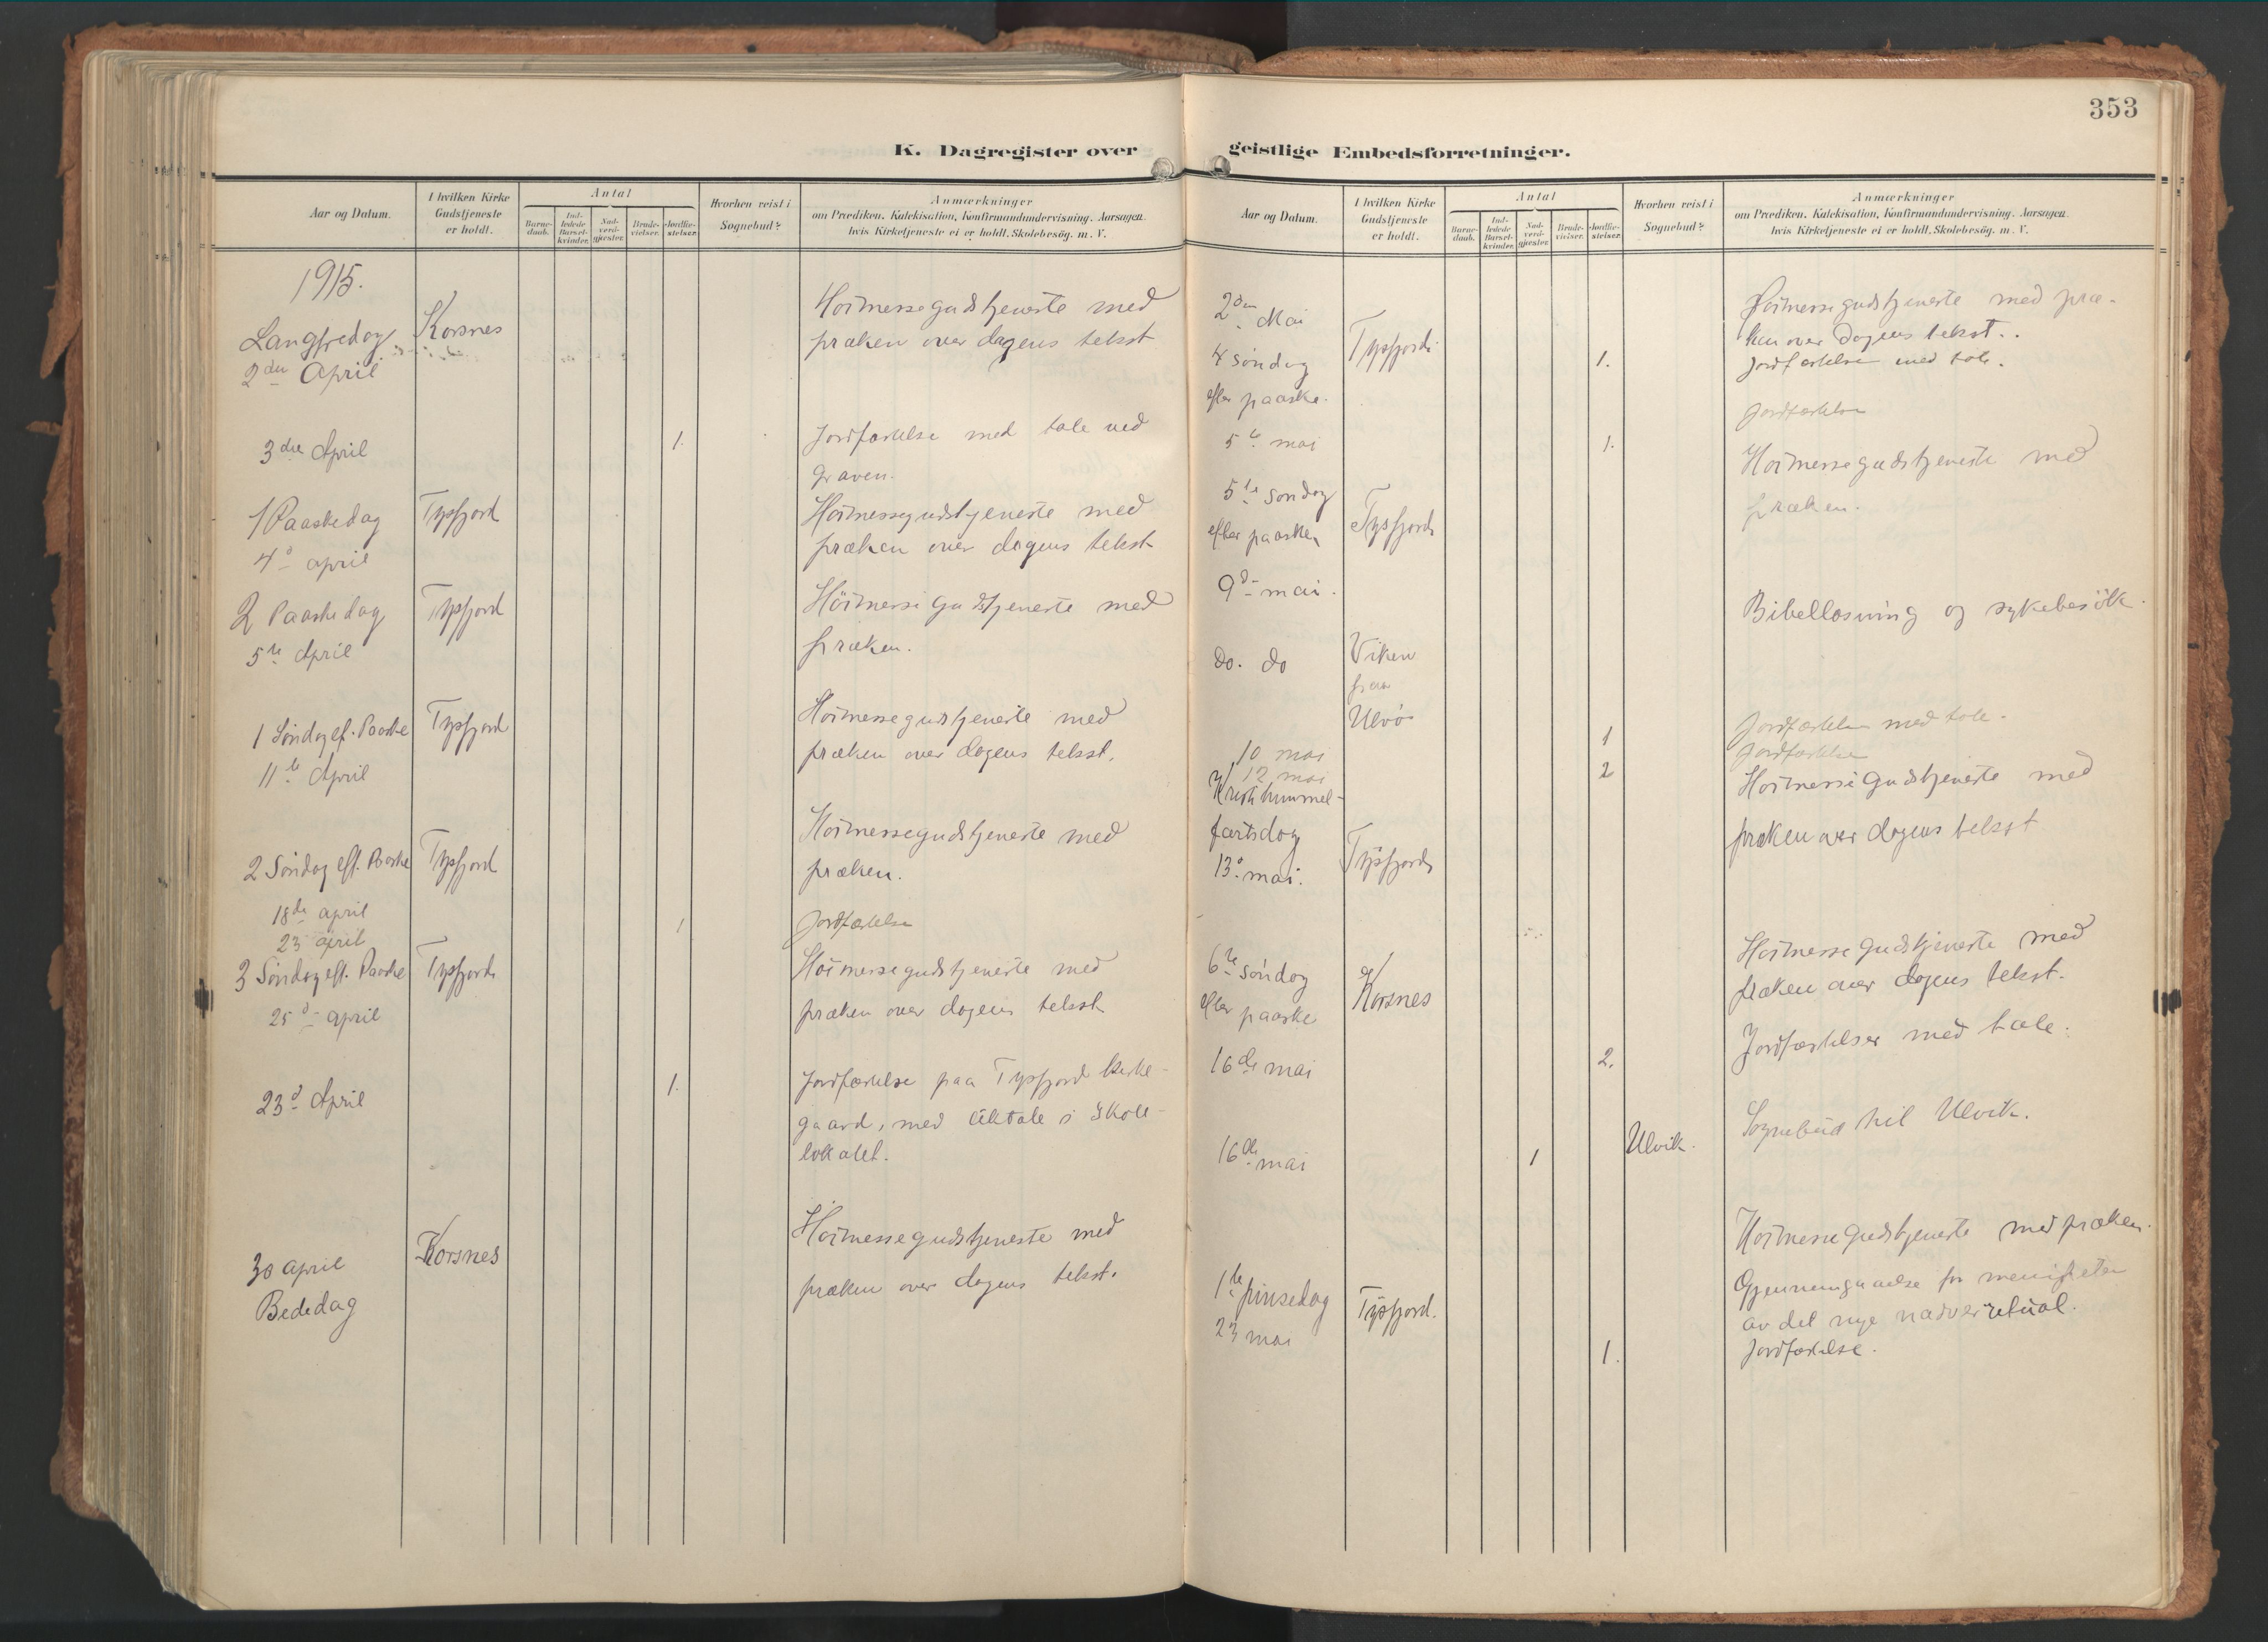 353
K. Dagregister over geistlige Embedsforretninger.
Aar og Datum.
I hvilken Kirke Gudstjeneste er holdt.
Antal
Barne-daab.
Ind-ledede Barsel-kvinder.
Nad-verd-gjæster.
Brude-vielser.
Jordfæ-stelser.
Hvorhen reist i Sognebud?
Anmærkninger
om Prædiken. Katekisation, Konfirmandundervisning. Aarsagen.
hvis Kirketjeneste ei er holdt. Skolebesög. m. V.
1915.
Langfredag Korsnes Höimessegudstjeneste med
præken over dagens tekst
2den April
3die April 1. Jordfæstelse med tale ved
graven.
1 Paaskedag Tysfjord Höimessegudstjeneste med
4d april præken over dagens tekst
2 Paaskedag Tysfjord Höimessegudstjeneste med
5te April præken.
1 Söndag ef. Paaske Tysfjord Höimessegudstjeneste med
11te April præken over dagens tekst.
2 Söndag eft. Paaske Tysfjord Höimessegudstjeneste med
præken.
18de april
23 april 1 Jordfæstelse
3 Söndag eft. Paaske Tysfjord Höimessegudstjeneste med
25d april præken over dagens tekst
23d April 1. Jordfæstelse paa Tysfjord kirke-
gaard, med liktale i skole-
lokalet.
30 april Korsnes Höimessegudstjeneste med
Bededag præken over dagens tekst.
Aar og Datum.
I hvilken Kirke Gudstjeneste er holdt.
Antal
Barne-daab.
Ind-ledede Barsel-kvinder.
Nad-verd-gjæster.
Brude-vielser.
Jordfæ-stelser.
Hvorhen reist i Sognebud?
Anmærkninger
om Prædiken. Katekisation, Konfirmandundervisning. Aarsagen.
hvis Kirketjeneste ei er holdt. Skolebesög. m. V.
2den Mai Höimessegudstjeneste med præ-
Tysfjord ken over dagens tekst.
4 söndag 1. Jordfæstelse med tale.
efter paaske.
5te mai 1. Jordfæstelse
5te söndag Höimessegudstjeneste med
efter paaske Tysfjord præken.
9d mai.
do. do Viken Bibellæsning og sykebesök.
paa
Ulvö
10 mai 1 Jordfæstelse med tale.
12 mai 2 Jordfæstelse
Kristi himmel- Höimessegudstjeneste med
fartsdag præken over dagens tekst
13d mai. Tysfjord
6te söndag Korsnes Höimessegudstjeneste med
efter paaske præken over dagens tekst.
16de mai 2. Jordfæstelser med tale.
16de mai 1 Ulvik. Sognebud til Ulvik.
1te pinsedag Tysfjord. Höimessegudstjeneste med præken.
23 mai Gjennemgaaelse for menigheten
av det nye nadverritual.
1. Jordfæstelse.